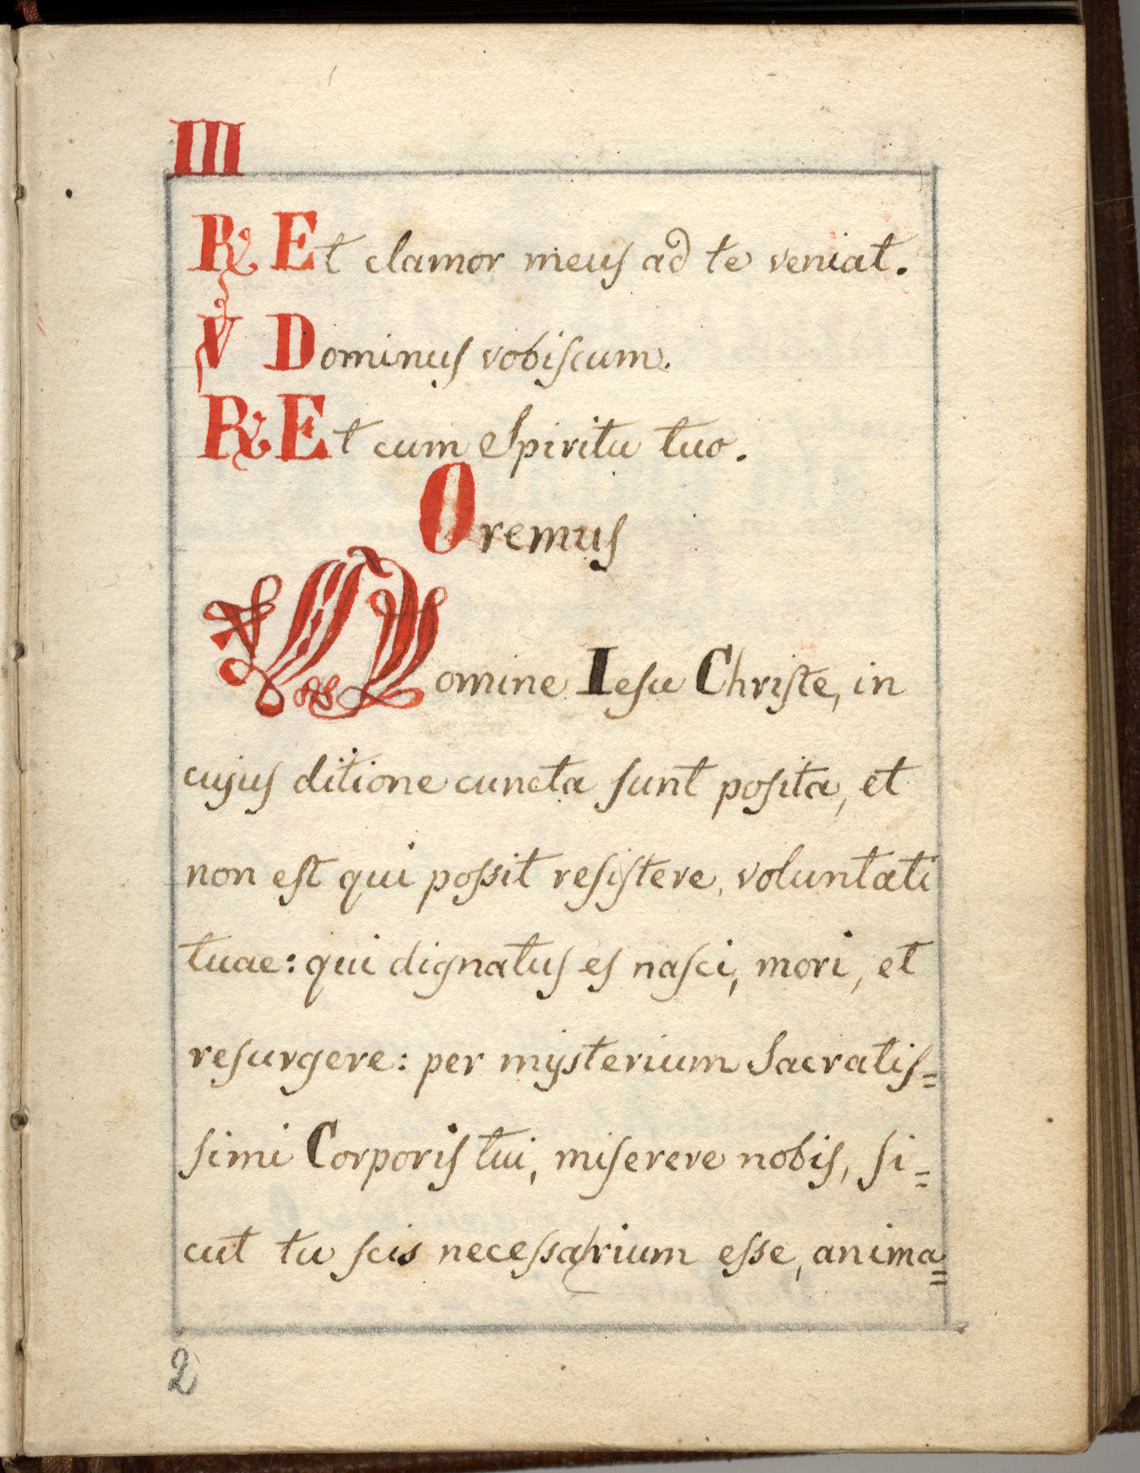 III
℟ Et clamor meuſ ad te veniat.
℣ Dominuſ vobiſcum.
℟ Et cum Spiritu tuo.
Oremuſ
Domine Ieſu Chriſte, in
cujuſ ditione cuncta ſunt poſita, et
non eſt qui poſsit reſiſtere, voluntati
tuae: qui dignatuſ eſ naſci, mori, et
reſurgere: per mysterium Sacratiſ=
ſimi Corporiſ tui, miſerere nobiſ, ſi=
cut tu ſcis neceſsarium eſse, anima=
2